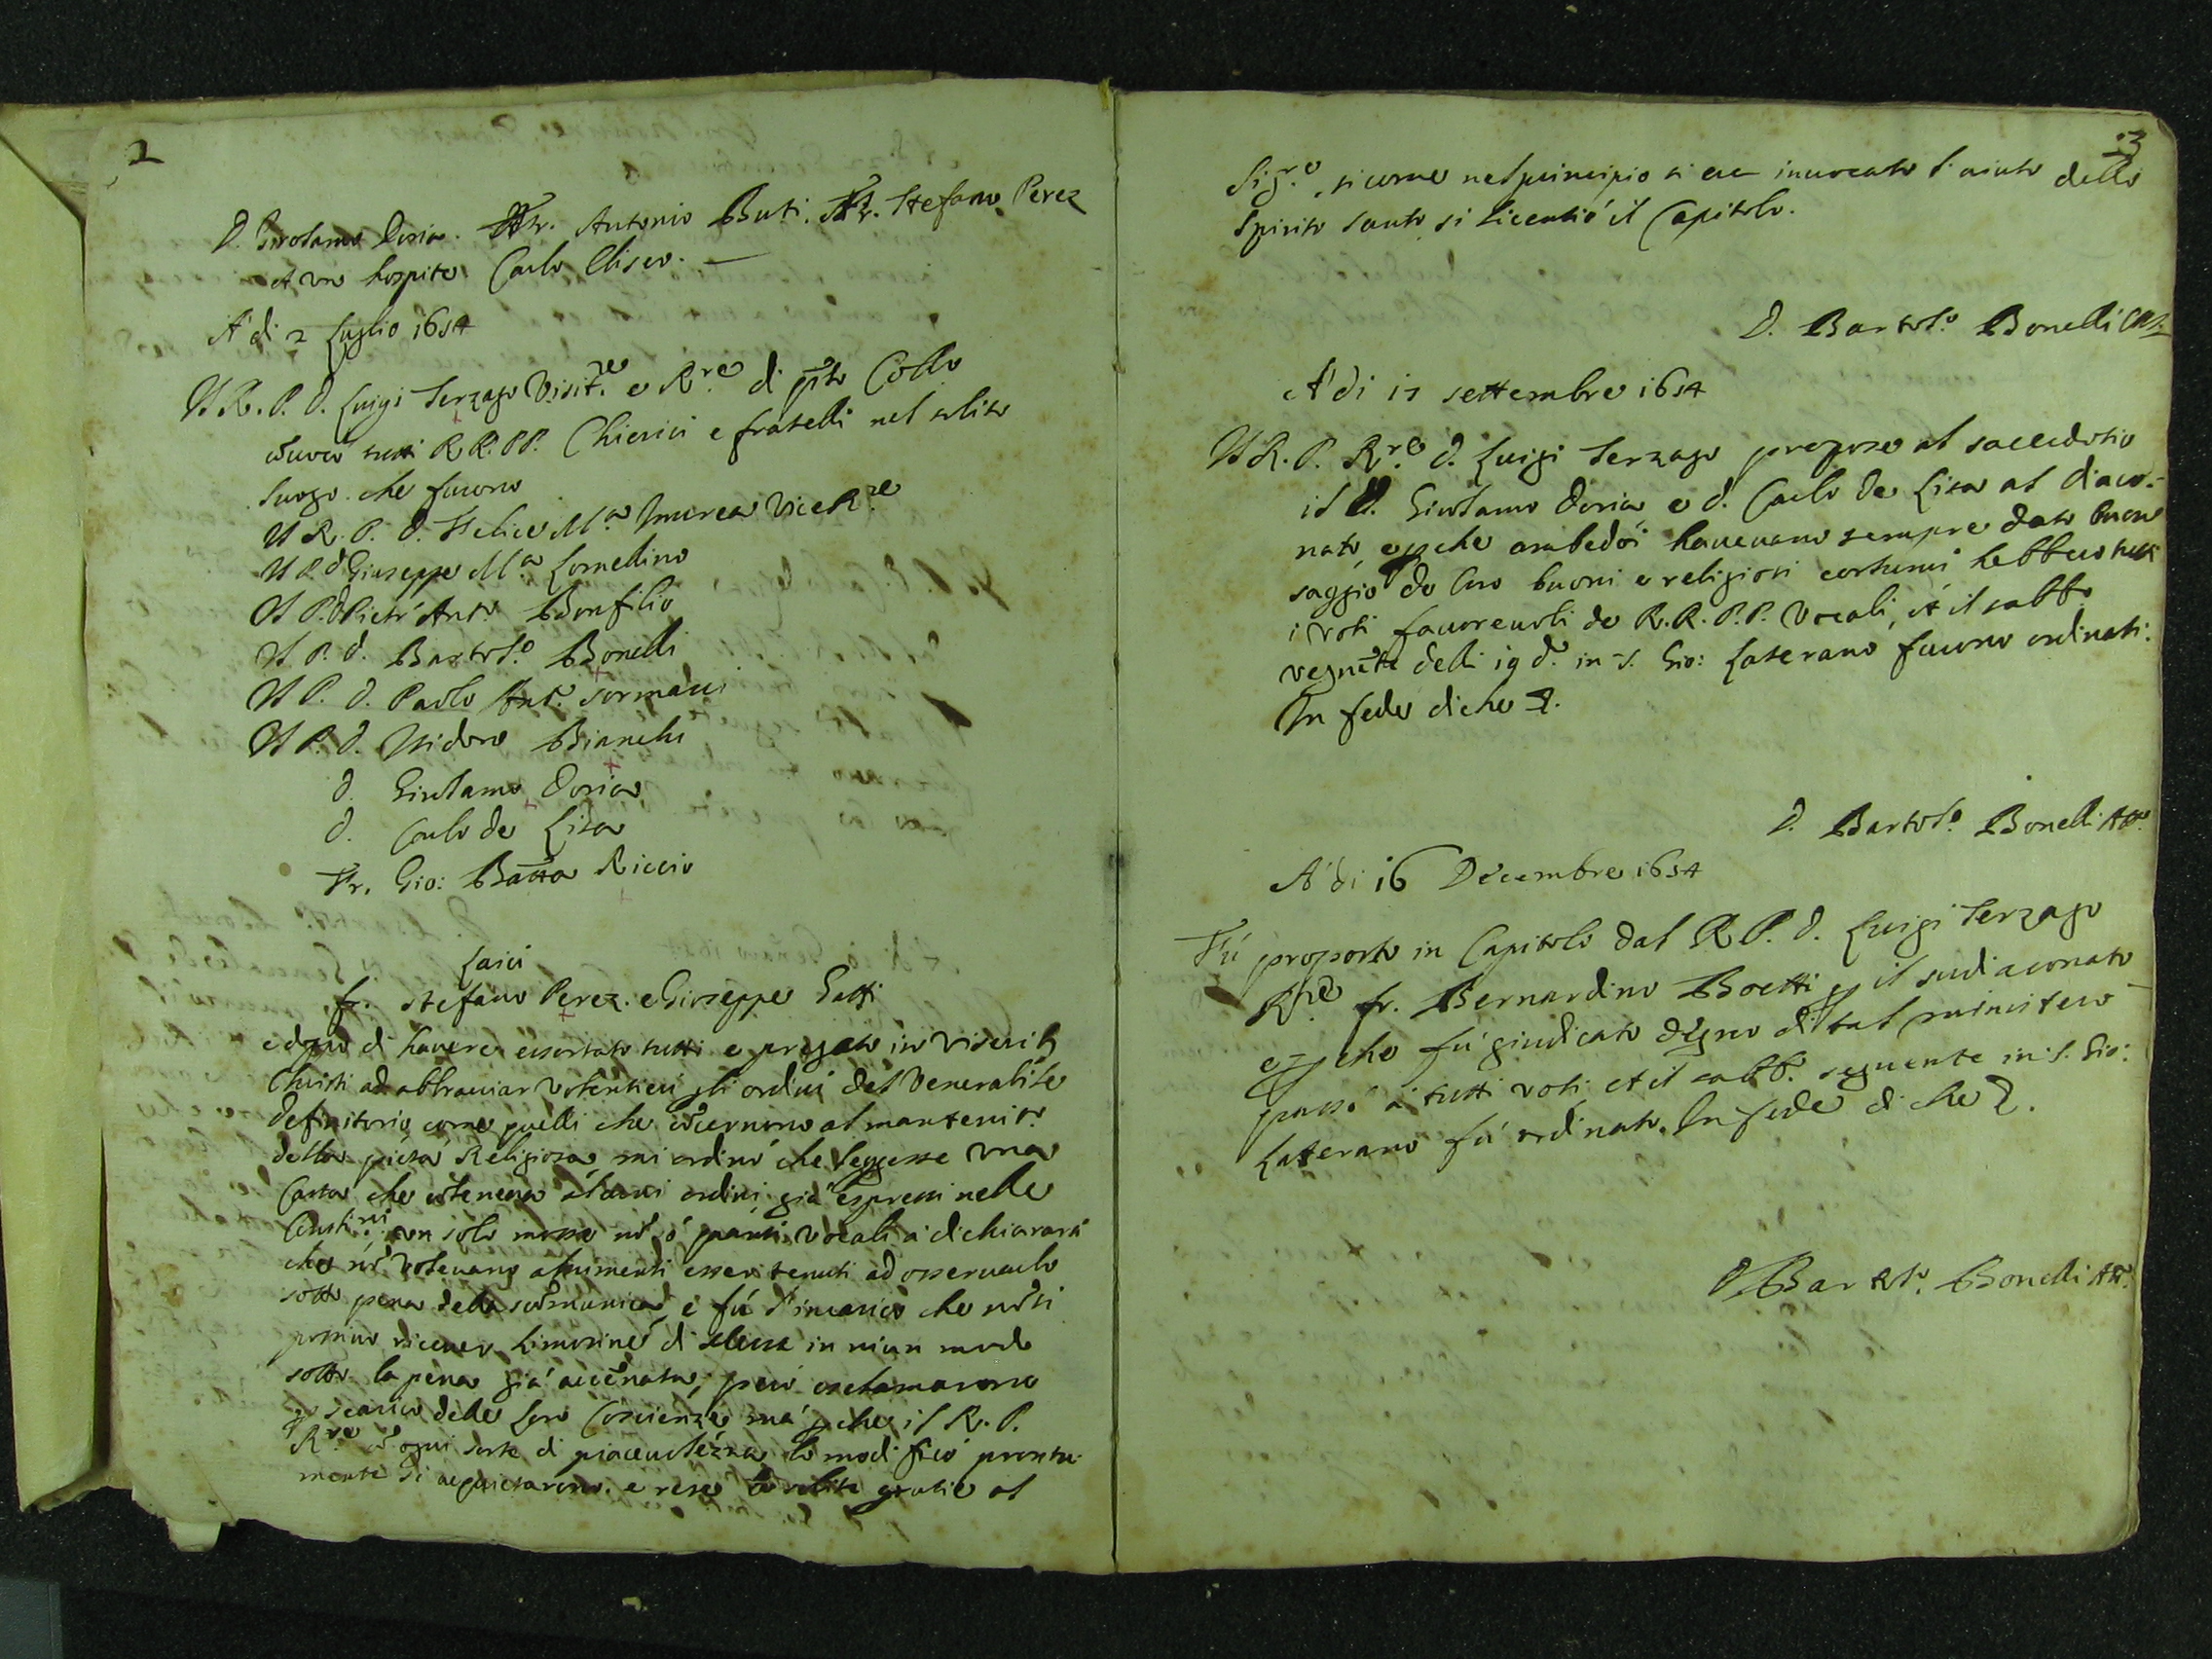 2
D. Girolamo Doria. Fr. Antonio Buti. Fr. Stefano Perez
et un hospite Carlo Eliseo.
A' di 2 Luglio 1654
Il R. P. D. Luigi Terzago Visit.re e R.re di q̃to Coll.o
cõuocò tutti RR. PP. Chierici e fratelli nel solito
luogo che furono
Il R. P. D. Felice M.a Vice R.re
Il P. D Giuseppe M.a Lomellino
Il P. D Pietr' Ant.o Bonfilio
Il P. D. Bartol.o Bonelli
Il P. D. Paolo Ant.o Sormani
Il P. D. Isidoro Bianchi
D. Girolamo Doria
D. Carlo de Lisa
Fr. Gio: Batta Riccio
Laici
fr. Stefano Perez. e Gioseppe Gatti
e dopo di hauere essortato tutti e pregato in visceribus
Christi ad abbracciar volentieri gli ordini del Venerabile
Definitorio come quelli che cõcernono al mantenim.to
della pietà Religiosa mi ordinò che leggesse una
Carta che cõteneua alcuni ordini già espressi nelle
Constit.ni un solo mosse nõ ò pauci vocali à dichiararsi
che nõ voleuano altrimenti esser tenuti ad osseruarlo
sotto pena della scõmunica, e fù l'incarico che nõ si
possino riceuer limosine di Messe in niun modo
sotto la pena già accẽnata, però esclamarono
p scarico delle loro Coscienze mà pche il R. P.
R.re cõ ogni sorte di piaceuolezza lo modificò pronta-
mente si acquietarono. e rese le solite gratie al
3
Sig.re, si come nel principio si era inuocato l'aiuto dello
Spirito Santo si licentiò il Capitolo.
D. Bartol.o Bonelli Att.
A' di 17 settembre 1654
Il R. P. R.re D. Luigi Terzago propose al sacerdotio
il D. Girolamo Doria e D. Carlo de Lisa al diaco-
nato, e pche ambedoi haueuano sempre dato buon
saggio de loro buoni e religiosi costumi hebbero tutti
i voti fauoreuoli de R.R. P.P. Vocali, et il sabb.o
vegnẽte delli 19 d.o in S. Gio: Laterano furono ordinati.
In fede di che &.
D. Bartol.o Bonelli Att.o
A' di 16 Decembre 1654
Fù proposto in Capitolo dal R. P. D. Luigi Terzago
R.re fr. Bernardino Boetti p il sudiaconato
e pche fù giudicato degno di tal ministero
passò à tutti voti, et il sabb. seguente in S. Gio:
Laterano fù ordinato. In fede di che &.
D. Bartol.o Bonelli Att.o